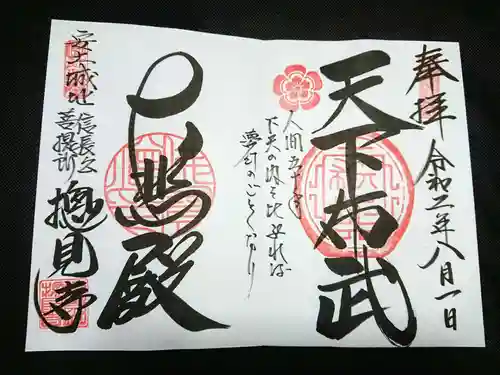 奉拝
令和二年八月一日
天下布武
人間五十年
下天の内を比ぶれば
夢幻のごとくなり
殿
安土城址
信長公
菩提所
摠見寺